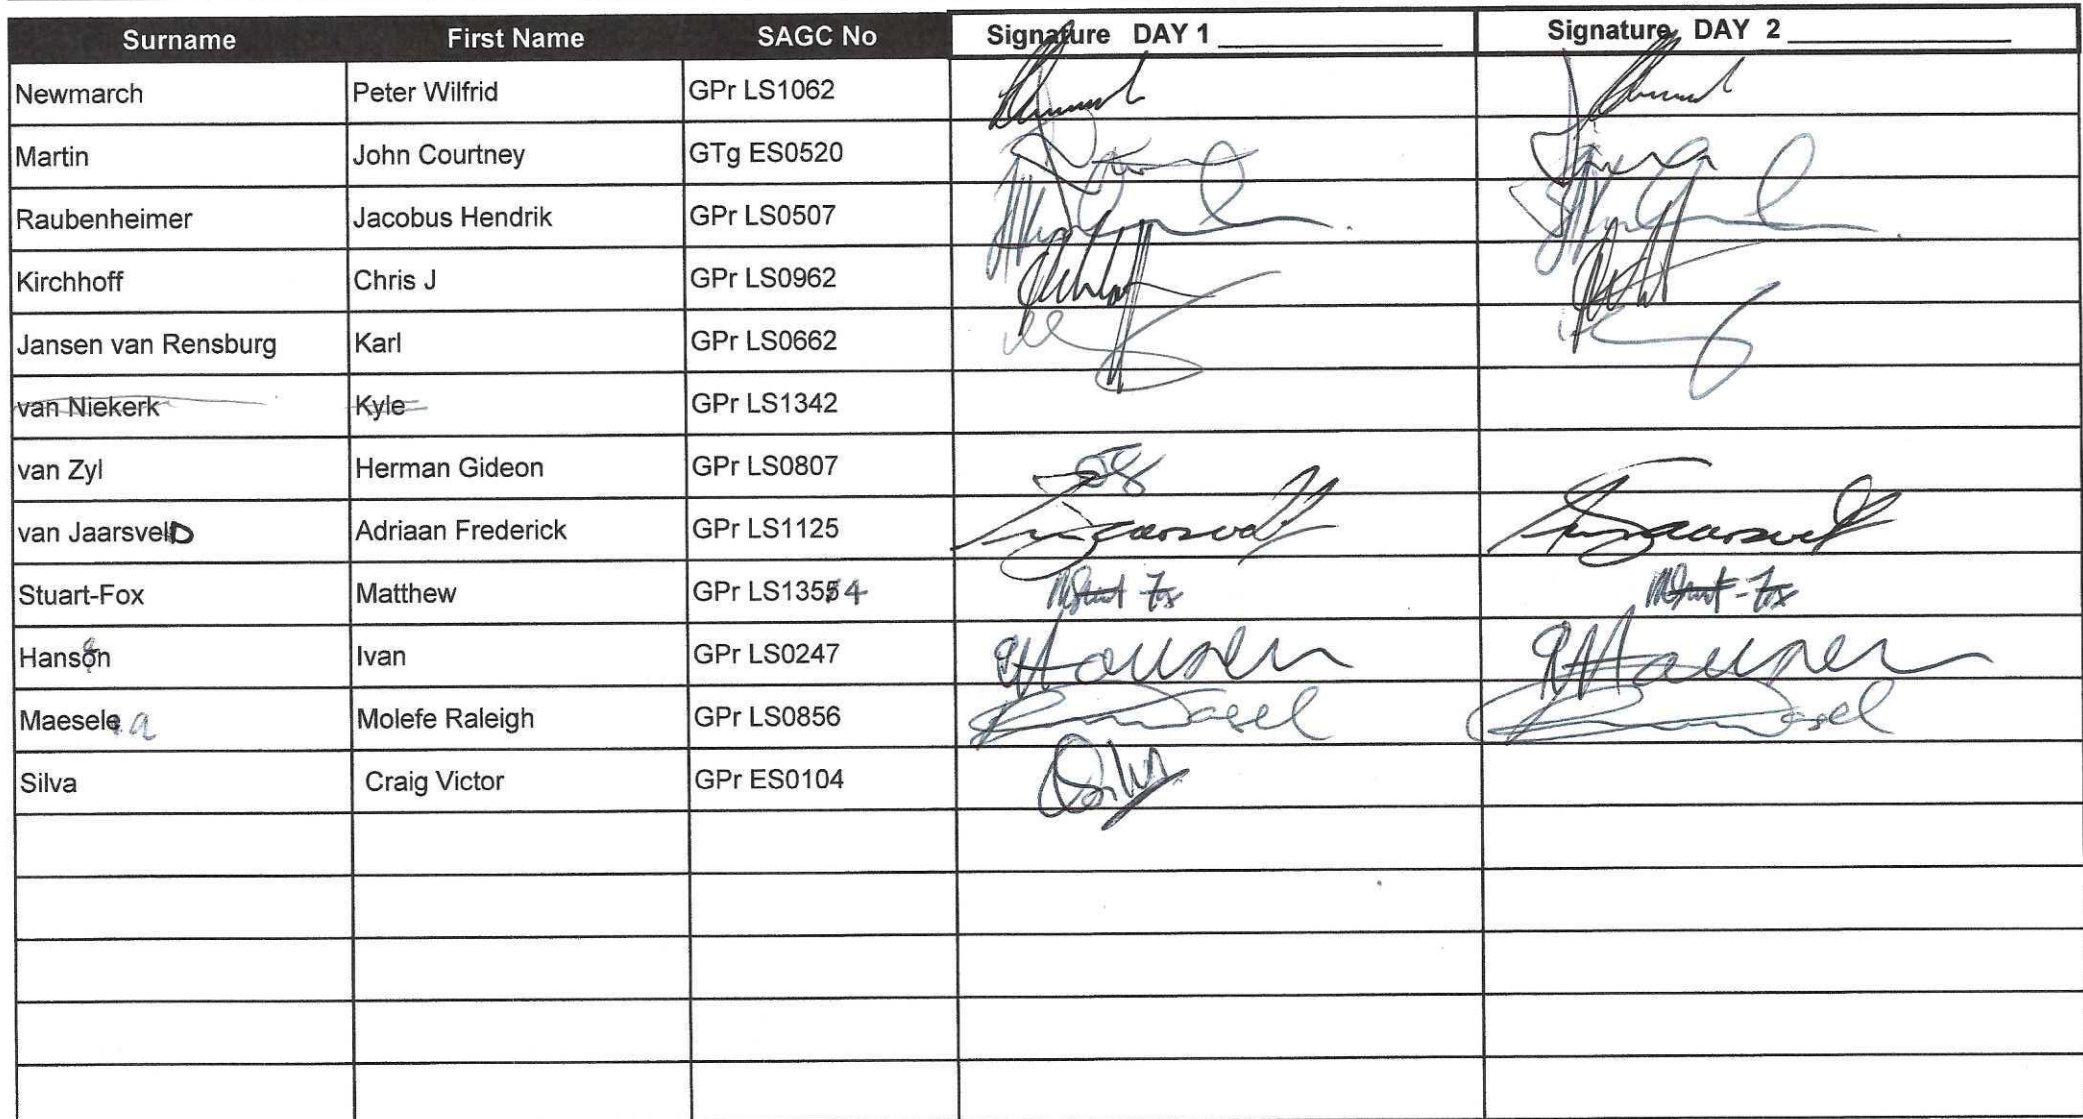 Surname First Name SAGC No Signature DAY 1 Signature DAY 2
Newmarch Peter Wilfrid GPr LS1062
Martin John Courtney GTg ES0520
Raubenheimer Jacobus Hendrik GPr LS0507
Kirchhoff Chris J GPr LS0962
Jansen van Rensburg Karl GPr LS0662
van Niekerk Kyle GPr LS1342
van Zyl Herman Gideon GPr LS0807
van JaarsvelD Adriaan Frederick GPr LS1125
Stuart-Fox Matthew GPr LS1354 MStuart-Fox MStuart-Fox
Hansen Ivan GPr LS0247 Hansen Hansen
Maesela Molefe Raleigh GPr LS0856
Silva Craig Victor GPr ES0104